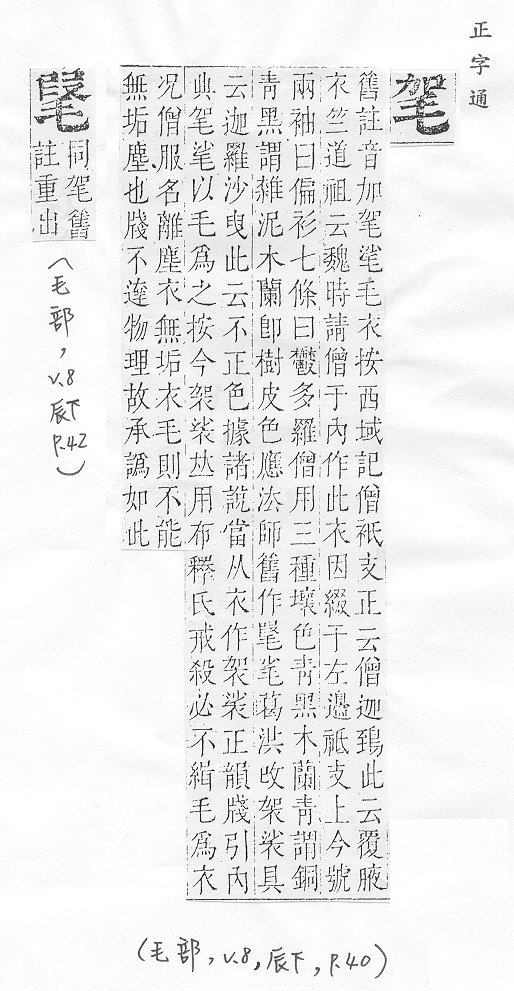 正字通
㲳
舊註音加㲳㲚毛衣按西域記僧祇支正云僧迦鵄此云覆腋
衣竺道祖云魏時請僧于內作此衣因綴于左邊祇支上今號
兩袖曰偏衫七條曰鬱多羅僧用三種壞色靑黑木蘭靑謂銅
靑黑謂雜泥木蘭卽樹皮色應法師舊作㲠㲚葛洪改袈裟具
云迦羅沙曳此云不正色據諸說當从衣作袈裟正韻牋引內
典㲳㲚以毛爲之按今袈裟𠀤用布釋氏戒殺必不緝毛爲衣
况僧服名離塵衣無垢衣毛則不能
無垢塵也牋不達物理故承譌如此
同㲳舊
註重出
(毛部, v.8 辰下 p.42)
(毛部, v.8, 辰下, p.40)